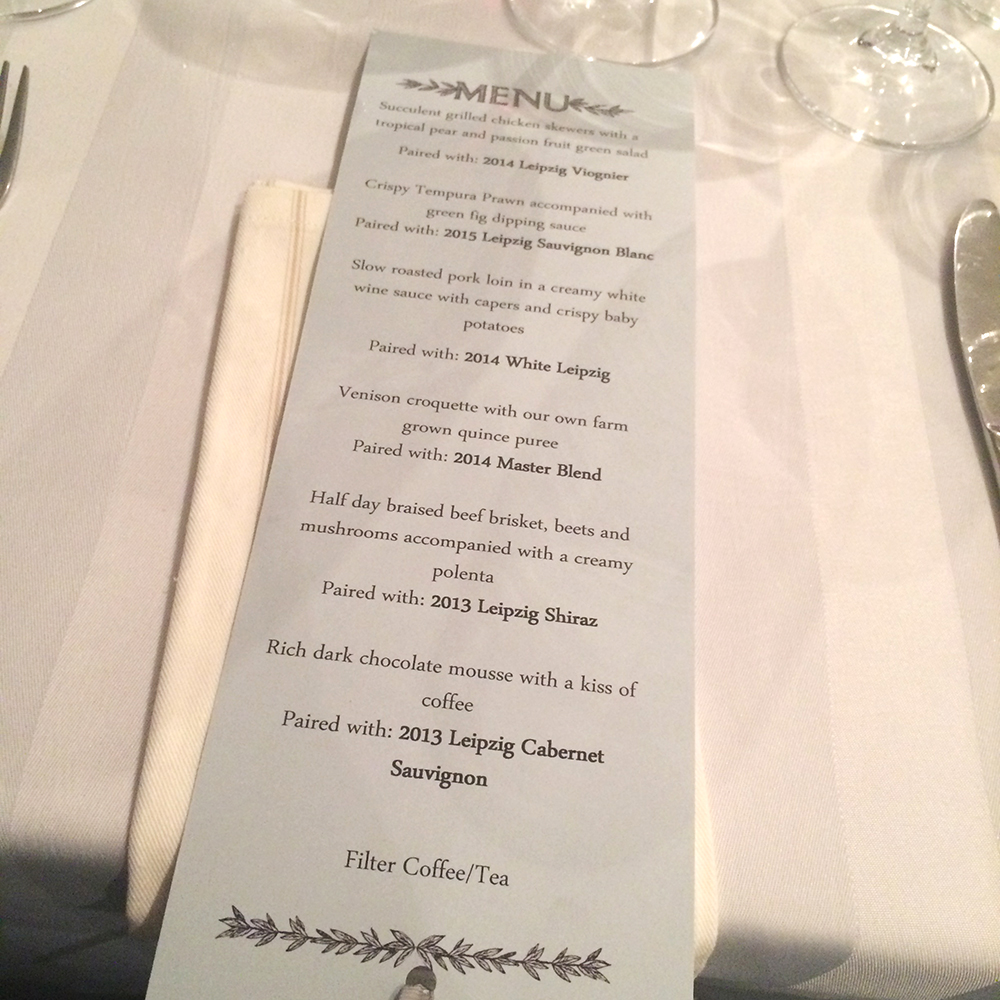 MENU
Succulent grilled chicken skewers with a
tropical pear and passion fruit green salad
Paired with: 2014 Leipzig Viognier
Crispy Tempura Prawn accompanied with
green fig dipping sauce
Paired with: 2015 Leipzig Sauvignon Blanc
Slow roasted pork loin in a creamy white
wine sauce with capers and crispy baby
potatoes
Paired with: 2014 White Leipzig
Venison croquette with our own farm
grown quince puree
Paired with: 2014 Master Blend
Half day braised beef brisket, beets and
mushrooms accompanied with a creamy
polenta
Paired with: 2013 Leipzig Shiraz
Rich dark chocolate mousse with a kiss of
coffee
Paired with: 2013 Leipzig Cabernet
Sauvignon
Filter Coffee/Tea